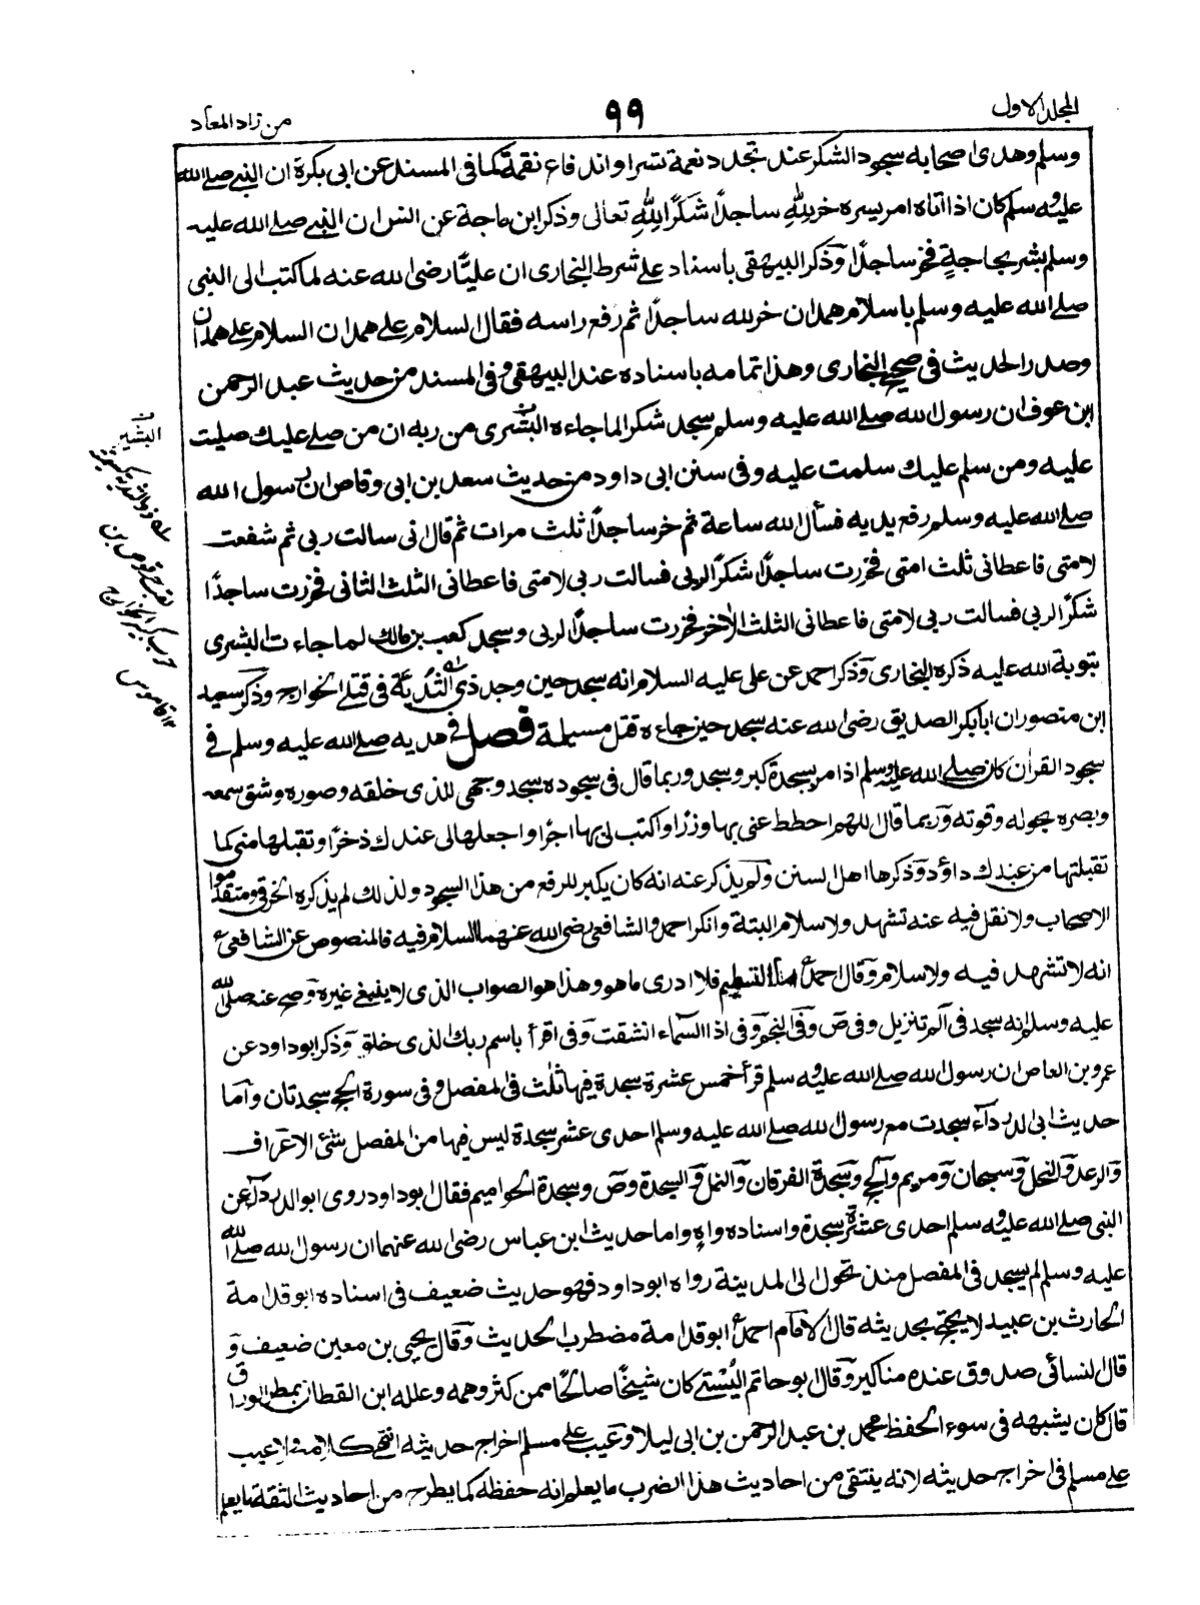 المجلد الاول
٩٩
من زاد المعاد
وسلم وهدى اصحابه سجود الشكر عند تجدد نعمة تسر او اندفاع نقمة كما فى المسند عن ابى بكرة ان النبى صلى الله
عليه وسلم كان اذا اتاه امر يسره خر لله ساجدًا شكرًا لله تعالى وذكر ابن ماجة عن انس ان النبى صلى الله عليه
وسلم بشر بحاجةٍ فخر ساجدًا وذكر البيهقى باسناد على شرط البخارى ان عليًّا رضى الله عنه لما كتب الى النبى
صلى الله عليه وسلم باسلام همدان خر لله ساجدًا ثم رفع راسه فقال السلام على همدان السلام على همدان
وصدر الحديث فى صحيح البخارى وهذا تمامه باسناده عند البيهقى وفى المسند من حديث عبد الرحمن
ابن عوف ان رسول الله صلى الله عليه وسلم سجد شكرا لما جاءه البشرى من ربه ان من صلى عليك صليت
عليه ومن سلم عليك سلمت عليه وفى سنن ابى داود من حديث سعد بن ابى وقاص ان رسول الله
صلى الله عليه وسلم رفع يديه فسأل الله ساعة ثم خر ساجدًا ثلث مرات ثم قال انى سالت ربى ثم شفعت
لامتى فاعطانى ثلث امتى فخررت ساجدًا شكرًا لربى فسالت ربى لامتى فاعطانى الثلث الثانى فخررت ساجدًا
شكرًا لربى فسالت ربى لامتى فاعطانى الثلث الاخر فخررت ساجدًا لربى وسجد كعب بن مالك لما جاءت البشرى
بتوبة الله عليه ذكره البخارى وذكر احمد عن على عليه السلام انه سجد حين وجد ذى الثدية فى قتلى الخوارج وذكر سعيد
ابن منصور ان ابا بكر الصديق رضى الله عنه سجد حين جاءه قتل مسيلمة فصل فى هديه صلى الله عليه وسلم فى
سجود القران كان صلى الله عليه وسلم اذا مر بسجدة كبر وسجد وربما قال فى سجوده سجد وجهى للذى خلقه وصوره وشق سمعه
وبصره بحوله وقوته وربما قال اللهم احطط عنى بها وزرًا واكتب لى بها اجرًا واجعلها لى عندك ذخرًا وتقبلها منى كما
تقبلتها من عبدك داؤد وذكرها اهل السنن ولم يذكر عنه انه كان يكبر للرفع من هذا السجود ولذلك لم يذكره الخرقى ومتقدموا
الاصحاب ولا نقل فيه عنه تشهد ولا سلام البتة وانكر احمد والشافعى رضى الله عنهما السلام فيه فالمنصوص عن الشافعى
انه لا تشهد فيه ولا سلام وقال احمد اما التسليم فلا ادرى ما هو وهذا هو الصواب الذى لا ينبغى غيره وصح عنه صلى الله
عليه وسلم انه سجد فى الم تنزيل وفى ص وفى النجم وفى اذا السماء انشقت وفى اقرأ باسم ربك الذى خلق وذكر ابو داود عن
عمرو بن العاص ان رسول الله صلى الله عليه وسلم قرأ خمس عشرة سجدة فيها ثلٰث فى المفصل وفى سورة الحج سجدتان واما
حديث ابى الدرداء سجدت مع رسول الله صلى الله عليه وسلم احدى عشر سجدة ليس فيها من المفصل شئ الاعراف
والرعد والنحل وسبحان ومريم والحج وسجدة الفرقان والنمل والسجدة وص وسجدة الحواميم فقال ابو داود روى ابو الدرداء عن
النبى صلى الله عليه وسلم احدى عشرة سجدة واسناده واهٍ واما حديث ابن عباس رضى الله عنهما ان رسول الله صلى الله
عليه وسلم لم يسجد فى المفصل منذ تحول الى المدينة رواه ابو داود فهو حديث ضعيف فى اسناده ابو قدامة
الحارث بن عبيد لا يحتج بحديثه قال الامام احمد ابو قدامة مضطرب الحديث وقال يحيى بن معين ضعيف و
قال النسائى صدوق عنده مناكير وقال ابو حاتم البُستى كان شيخًا صالحًا ممن كثر وهمه وعلله ابن القطان بمطر الوراق
قال كان يشبهه فى سوء الحفظ محمد بن عبد الرحمن بن ابى ليلا وعيب على مسلم اخراج حديثه انتهى كلامه ولا عيب
على مسلم فى اخراج حديثه لانه ينتقى من احاديث هذا الضرب ما يعلم انه حفظه كما يطرح من احاديث الثقة ما يعلم
ن
البشير
١٢ قاموس